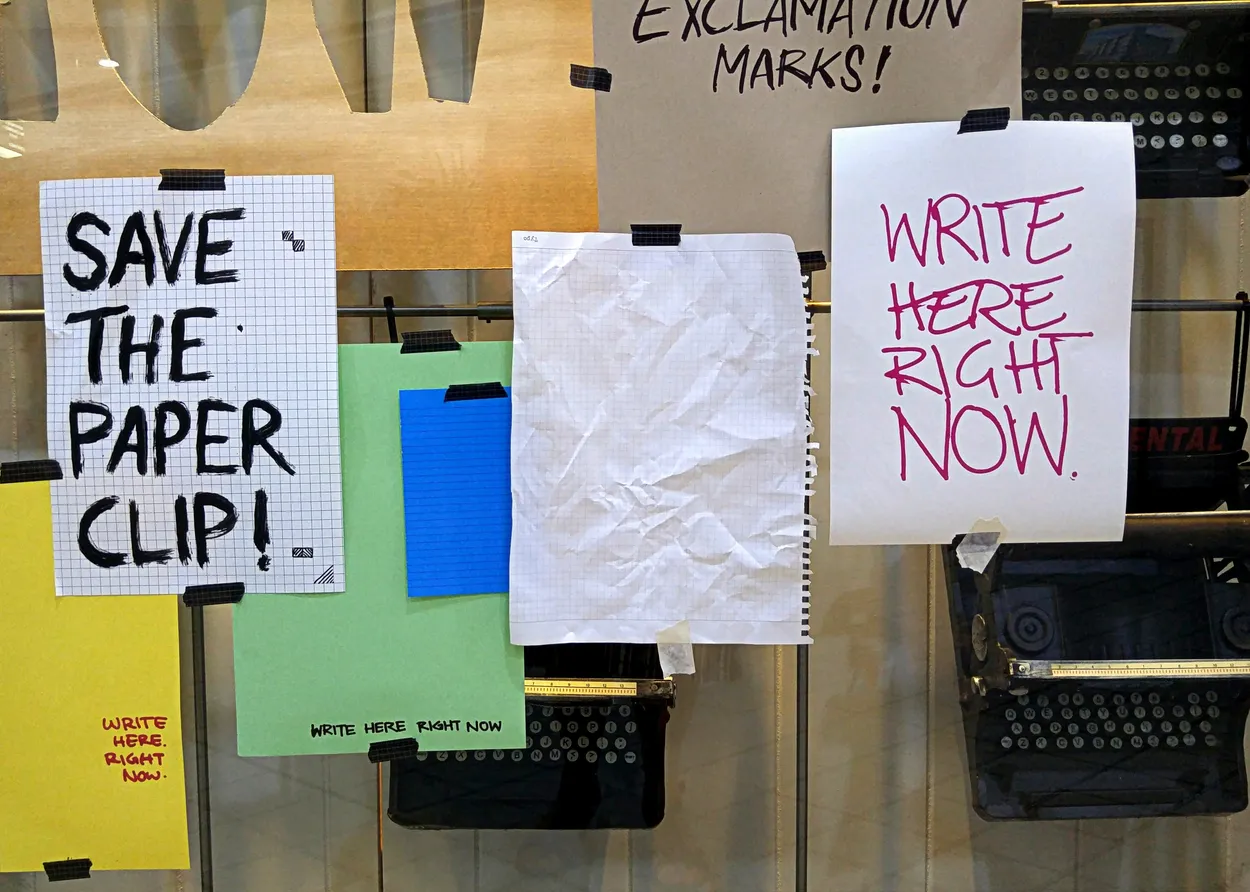 EXCLAMATION
MARKS!
SAVE
THE
PAPER
CLIP!
WRITE
HERE
RIGHT
NOW.
ENTAL
WRITE HERE RIGHT NOW
WRITE
HERE.
RIGHT
NOW.